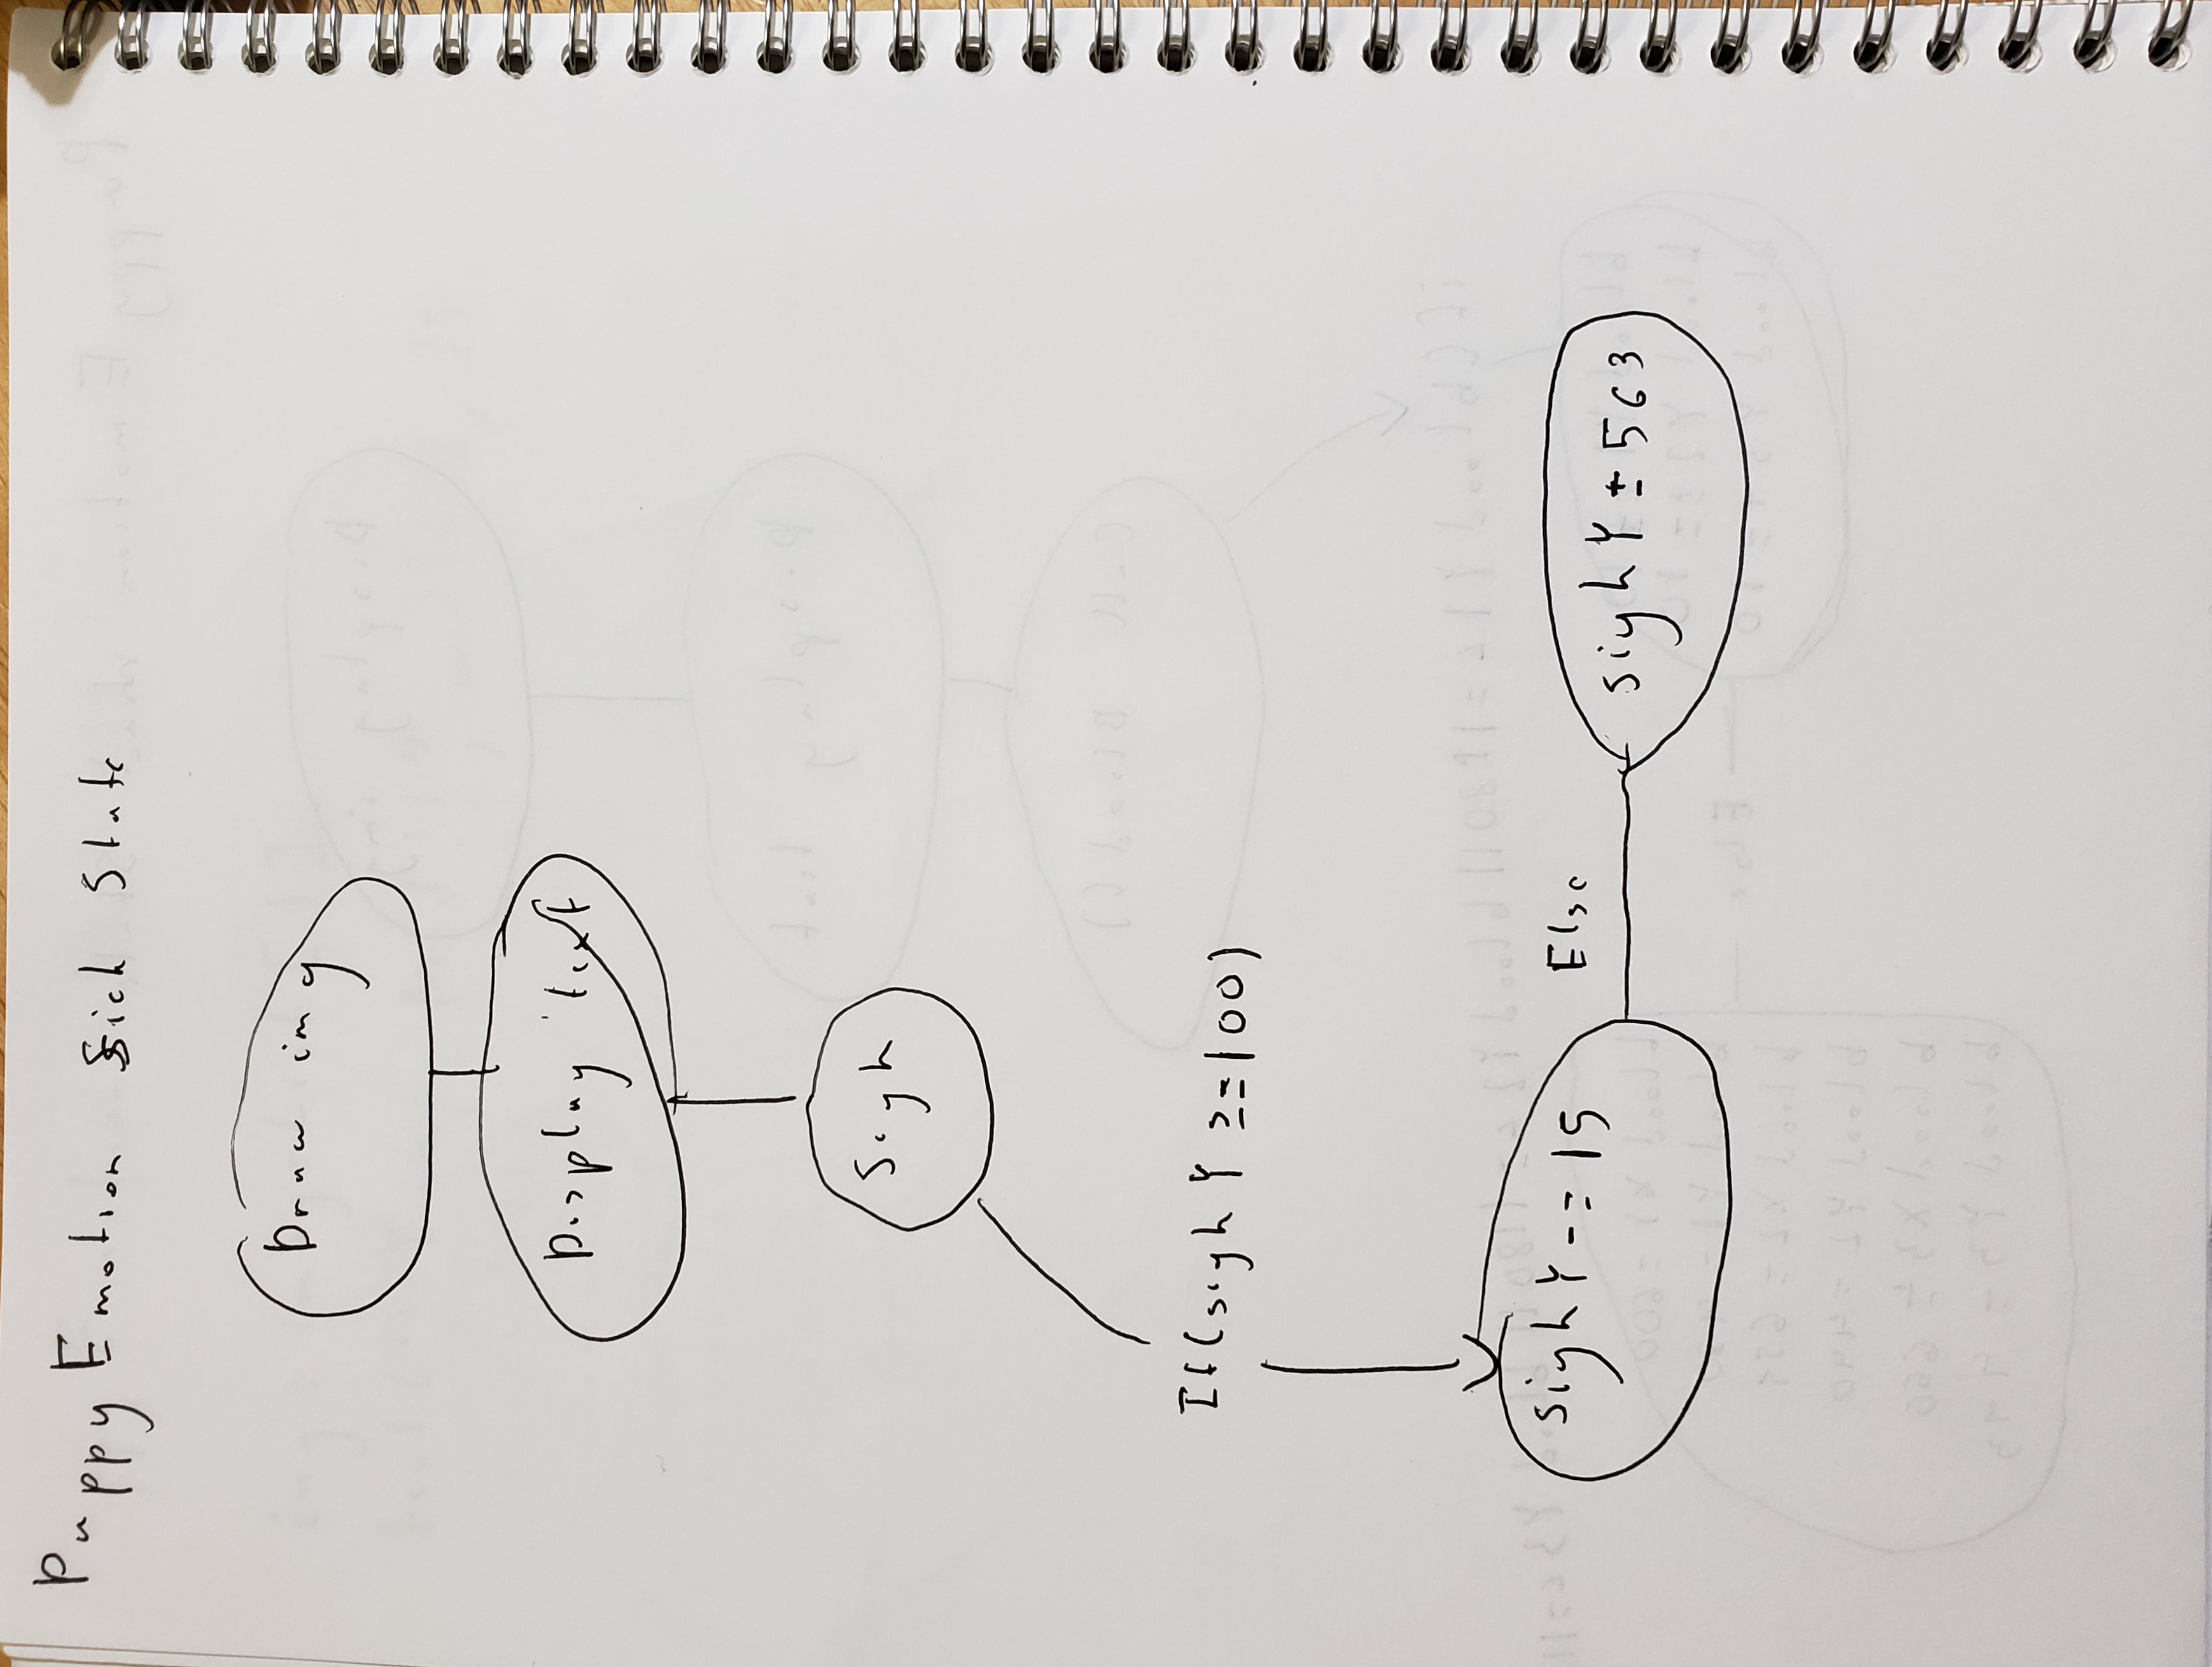 Puppy Emotion Sick State
Draw img
Display text
Sigh
If(sigh Y >=100)
sigh Y -= 15
Else
sigh Y ± 563